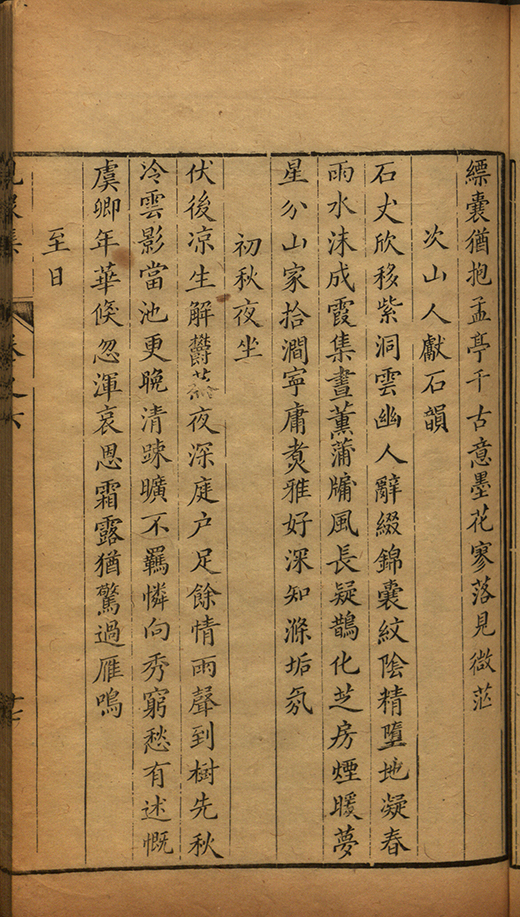 縹囊猶抱孟亭千古意墨花寥落見微茫
次山人獻石韻
石丈欣移紫洞雲幽人辭綴錦囊紋陰精墮地凝春
雨水沫成霞集晝薰蒲牗風長疑鵲化芝房煙暖夢
星分山家拾澗寧庸煑雅好深知滌垢氛
初秋夜坐
伏後凉生解鬱蒸夜深庭户足餘情雨聲到樹先秋
冷雲影當池更晚清踈曠不羈憐向秀窮愁有述慨
虞卿年華倐忽渾哀思霜露猶驚過雁鳴
至日
集
卷之六